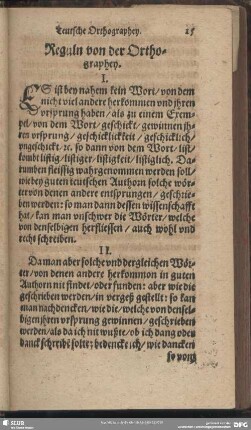 Teutsche Orthographey. 25
Reguln von der Ortho-
graphey.
I.
ES ist bey nahem kein Wort / von dem
nicht viel andere herkommen vnd jhren
vrsprung haben / als zu einem Exem-
pel / von dem Wort / geschikt / gewinnen jh-
ren vrsprung / geschicklickeit / geschicklich /
vngeschickt / ꝛc. so dann von dem Wort / list
kombt listig / listiger / listigkeit / listiglich. Da-
rumben fleissig wahrgenommen werden soll /
wie bey guten teutschen Authorn solche wör-
ter von denen andere entspringen / geschrie-
ben werden: so man dann dessen wissenschafft
hat / kan man vnschwer die Wörter / welche
von denselbigen herfliessen / auch wohl vnd
recht schreiben.
II.
Da man aber solche vnd dergleichen Wör-
ter / von denen andere herkommen in guten
Authorn nit findet / oder funden: aber wie die
geschrieben werden / in vergeß gestellt: so kan
man nachdencken / wie die / welche von densel-
bigen jhren vrsprung gewinnen / geschrieben
werden / als da ich nit wußte / ob ich dang oder
danck schreibē solte; bedencke ich / wie dancken
so von